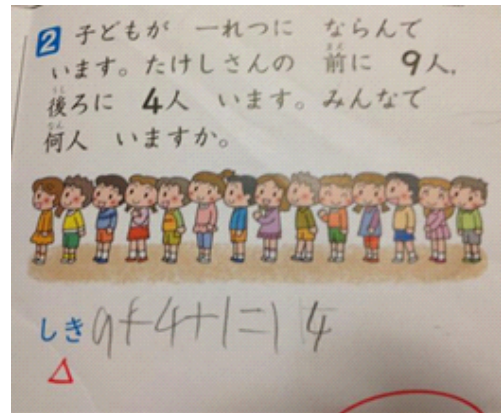 2 子どもが 一れつに ならんで
います。たけしさんの 前に 9人、
後ろに 4人 います。みんなで
何人 いますか。
しき 9+4+1=14